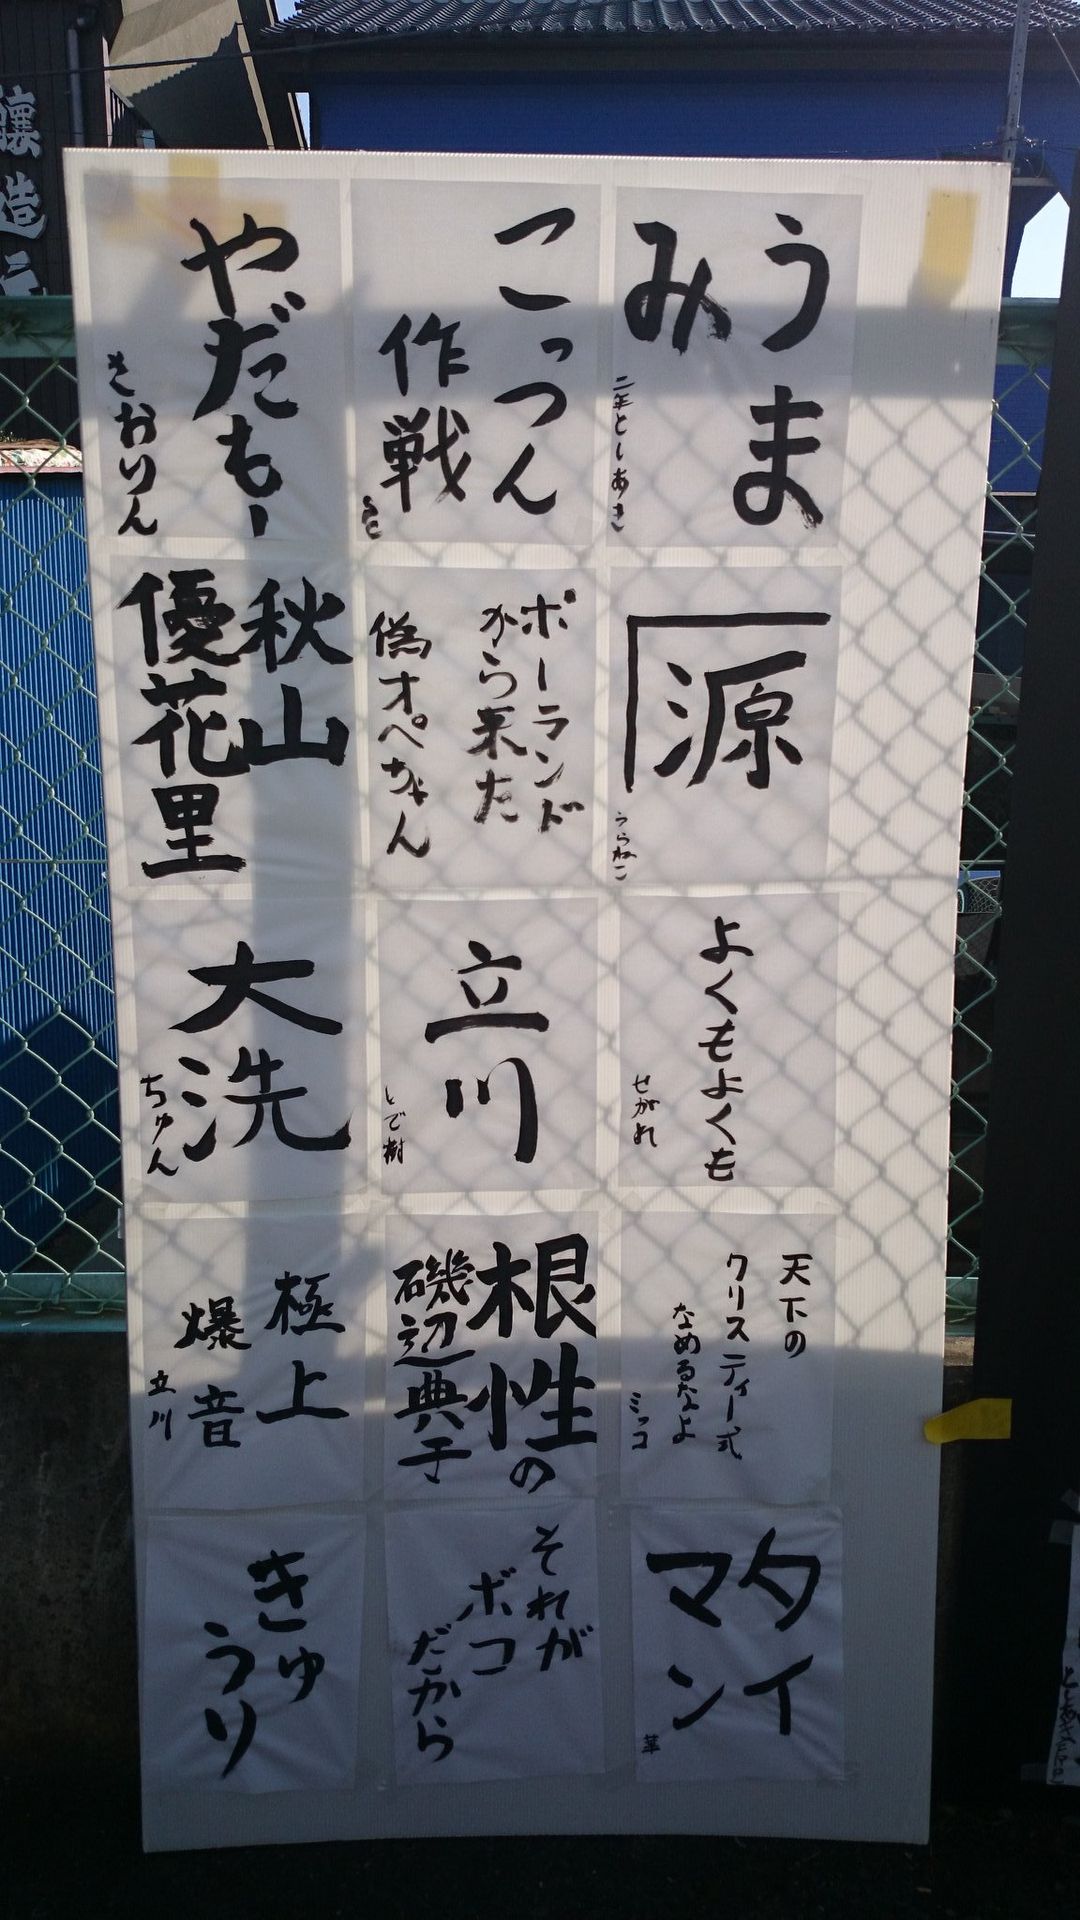 うま
みん
二年としあき
こっつん
作戦
やだもー
さおりん
源
うらねこ
ポーランド
から来た
偽オペちゃん
秋山
優花里
よくもよくも
せがれ
立川
いで樹
大洗
ちゅん
天下の
クリスティー式
なめるなよ
ミッコ
根性の
磯辺典子
極上
爆音
立川
タイ
マン
華
それが
ボコ
だから
きゅ
うり
醸造元